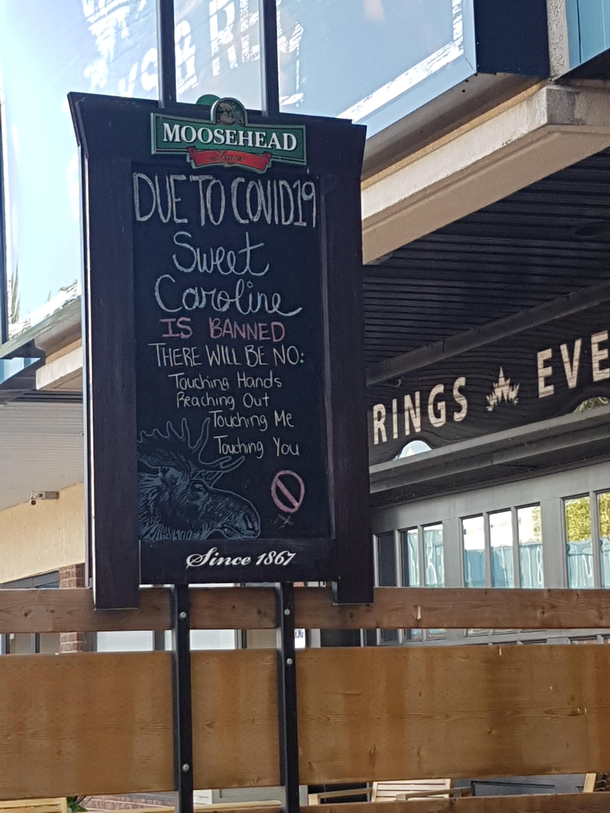 MOOSEHEAD
Lager
DUE TO COVID19
Sweet
Caroline
IS BANNED
THERE WILL BE NO:
Touching Hands
Reaching Out
Touching Me
Touching You
Since 1867
RINGS EVE